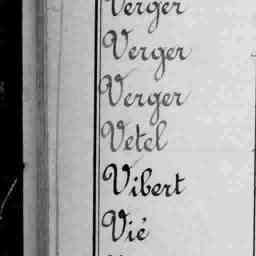 Verger
Verger
Verger
Vetel
Vibert
Vié